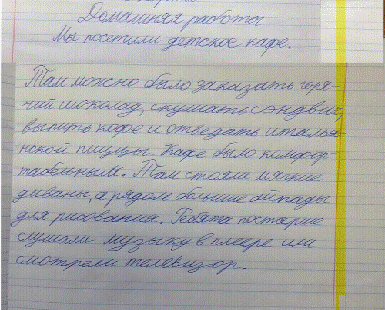 Домашняя работа
Мы постили детское кафе.
Там можно было заказать горя-
чий шоколад, скушать сэндвич,
выпить кофе и отведать италья-
нской пиццы. Кафе было комфор
табельным. Там стояли мягкие
диваны, а рядом большие айпады
для рисования. Ребята постарше
слушали музыку в плеере или
смотрели телевизор.